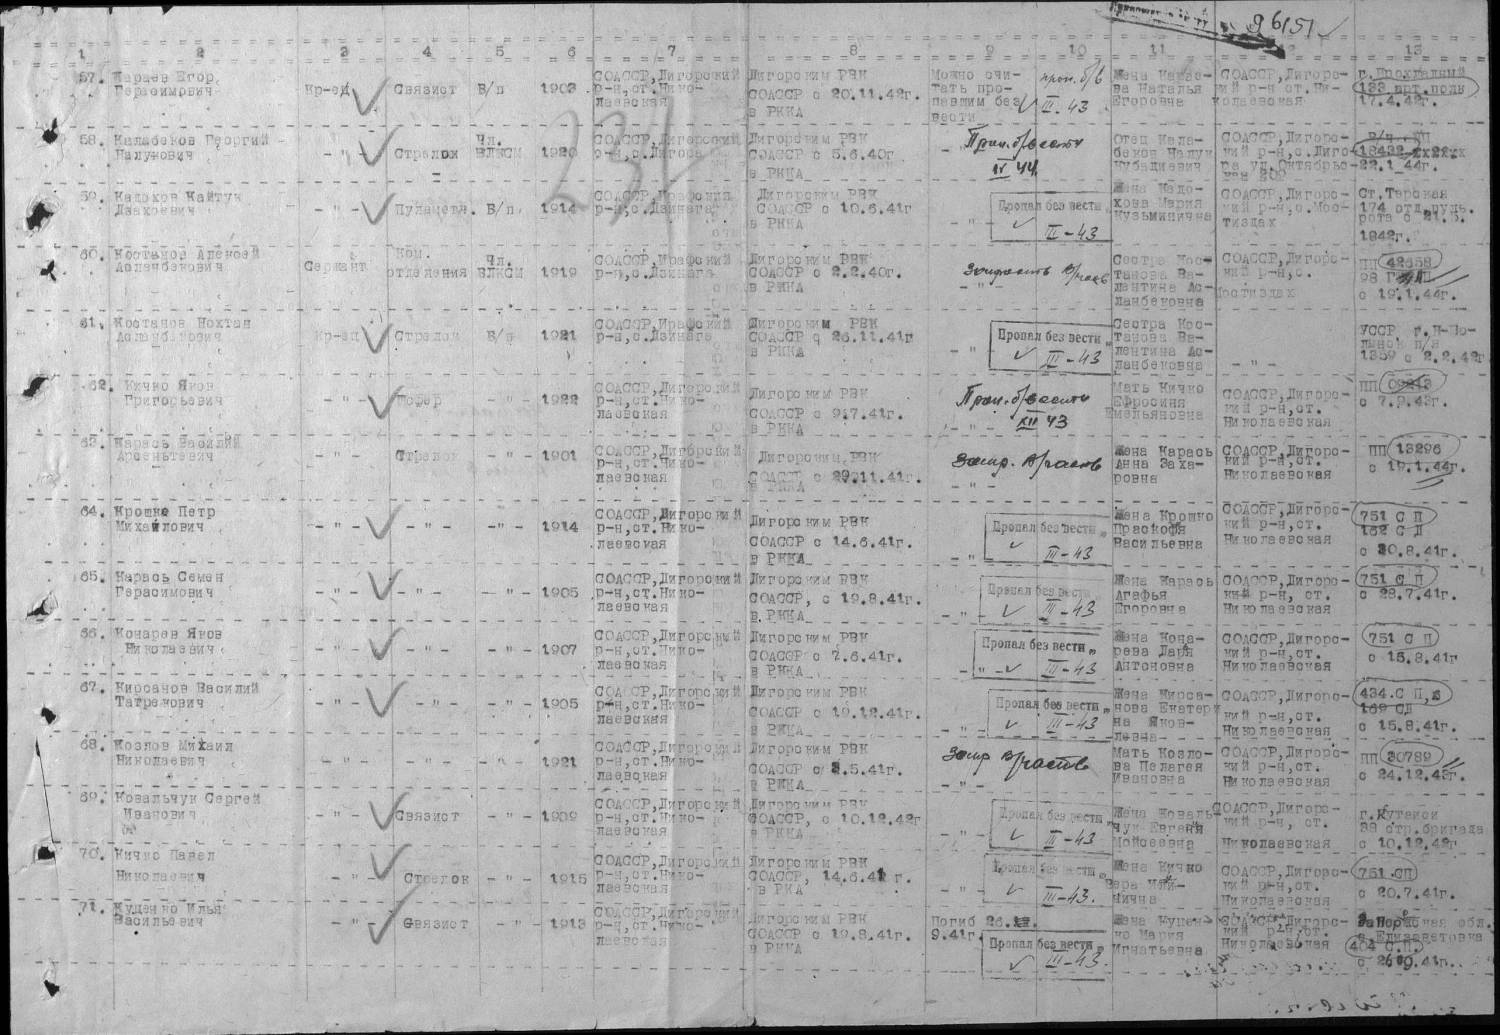 96151
1 2 3 4 5 6 7 8 9 10 11 13
57. Караев Егор Герасимович Кр-ец Связист В/п 1903 СОАССР, Дигорский р-н, ст. Нико-лаевская Дигорским РВК СОАССР с 20.11.42г. в РККА Можно счи-тать про-павшим без вести проп. б/в III. 43. Жена Караева Наталья Егоровна СОАССР, Дигорс-кий р-н ст. Ни-колаевская г. Прохладный 133 арт. полк 17.4.42г.
58. Калабеков Георгий -"- Стрелок Чл. ВЛКСМ 1920 СОАССР, Дигорский р-н, с. Дигора Дигорским РВК СОАССР с 5.6.40г в РККА Проп. б/вести IV 44. Отец Кала-беков СОАССР, Дигорс-кий р-н, с. Диго-ра ул. Октябрьс- 22.1.44г.
59. Кадохов Кайтук -"- В/п. 1914 р-н, с. Дзинага Дигорским РВК СОАССР с 10.6.41г в РККА -"- Пропал без вести III-43 Жена Кадо-хова Мария Кузьминична СОАССР, Дигорс-кий р-н, с. Мос-тиздах Ст. Терская 174 отд. пуль. рота с 21.5. 1942г.
60. Костанов Алексей Асланбекович Сержант Ком. отделения Чл. ВЛКСМ 1919 СОАССР, Ирафский р-н, с. Дзинага Дигорским РВК СОАССР с 2.2.40г. в РККА -"- Сестра Кос-танова Ва-лентина Ас-ланбековна СОАССР, Дигорс-кий р-н, с. Мостиздах ПП 42658 с 19.1.44г.
61. Костанов Асланбекович Кр-ец Стрелок В/п 1921 СОАССР, Ирафский р-н, с. Дзинага Дигорским РВК СОАССР с 26.11.41г в РККА -"- Пропал без вести III-43 Сестра Кос-танова Ва-лентина Ас-ланбековна -"- УССР 1359 с 2.2.42г
62. Кичко Яков Григорьевич -"- Шофер -"- 1922 СОАССР, Дигорский р-н, ст. Нико-лаевская Дигорским РВК СОАССР с 9.7.41г. в РККА Проп. б/вести XII 43 -"- Мать Кичко Ефросиня Емельяновна СОАССР, Дигорс-кий р-н, ст. Николаевская ПП с 7.9.43г.
63. Карась Василий Арсеньтевич -"- Стрелок -"- 1901 СОАССР, Дигорский р-н, ст. Нико-лаевская Дигорским РВК СОАССР с 29.11.41г. в РККА -"- Жена Карась Анна Заха-ровна СОАССР, Дигорс-кий р-н, ст. Николаевская ПП 13296 с 19.1.44г.
64. Крошко Петр Михайлович -"- -"- -"- 1914 СОАССР, Дигорский р-н, ст. Нико-лаевская Дигорским РВК СОАССР с 14.6.41г. в РККА -"- Пропал без вести III-43 Жена Крошко Прасковя Васильевна СОАССР, Дигорс-кий р-н, ст. Николаевская 751 С П 162 С Д с 30.8.41г.
65. Карась Семен Герасимович -"- -"- -"- 1905 СОАССР, Дигорский р-н, ст. Нико-лаевская Дигорским РВК СОАССР, с 19.8.41г. в РККА -"- Пропал без вести III-43 Жена Карась Агафья Егоровна СОАССР, Дигорс-кий р-н, ст. Николаевская 751 С П с 28.7.41г.
66. Конарев Яков Николаевич -"- -"- -"- 1907 СОАССР, Дигорский р-н, ст. Нико-лаевская Дигорским РВК СОАССР с 7.6.41г. в РККА -"- Пропал без вести III-43 Жена Кона-рева Даря Антоновна СОАССР, Дигорс-кий р-н, ст. Николаевская 751 С П с 15.8.41г
67. Кирсанов Василий -"- -"- -"- 1905 СОАССР, Дигорский р-н, ст. Нико-лаевская Дигорским РВК СОАССР с 19.12.41г. в РККА -"- Пропал без вести III-43 Жена Кирса-нова Екатери на Яков-левна СОАССР, Дигорс-кий р-н, ст. Николаевская 434 С П, 162 СД с 15.8.41г.
68. Козлов Михаил Николаевич -"- -"- -"- 1921 СОАССР, Дигорский р-н, ст. Нико-лаевская Дигорским РВК СОАССР с 3.5.41г. в РККА -"- Мать Козло-ва Пелагея Ивановна СОАССР, Дигорс-кий р-н, ст. Николаевская ПП 30789 с 24.12.43г.
69. Ковальчук Сергей Иванович -"- Связист -"- 1909 СОАССР, Дигорский р-н, ст. Нико-лаевская Дигорским РВК СОАССР, с 10.12.42г в РККА -"- Пропал без вести III-43 Жена Коваль чук Евгения Мойсеевна СОАССР, Дигорс-кий р-н, ст. Николаевская г. Кутаиси стр. бригада с 10.12.42г
70. Кичко Павел Николаевич -"- Стрелок -"- 1915 СОАССР, Дигорский р-н, ст. Нико-лаевская Дигорским РВК СОАССР, 14.6.41г. в РКА -"- Пропал без вести III-43. Жена Кичко Вера СОАССР, Дигорс-кий р-н, ст. Николаевская 751 СП с 20.7.41г.
71. Куценко Илья Васильевич -"- Связист -"- 1913 СОАССР, Дигорский р-н, ст. Нико-лаевская Дигорским РВК СОАССР с 19.8.41г. в РККА Погиб 26. 9.41г. Пропал без вести III-43. Жена Куцен-ко Мария Игнатьевна СОАССР, Дигорс-кий р-н, ст. Николаевская обл. Елизаветовка 404 С.П. с 26.9.41г.
237